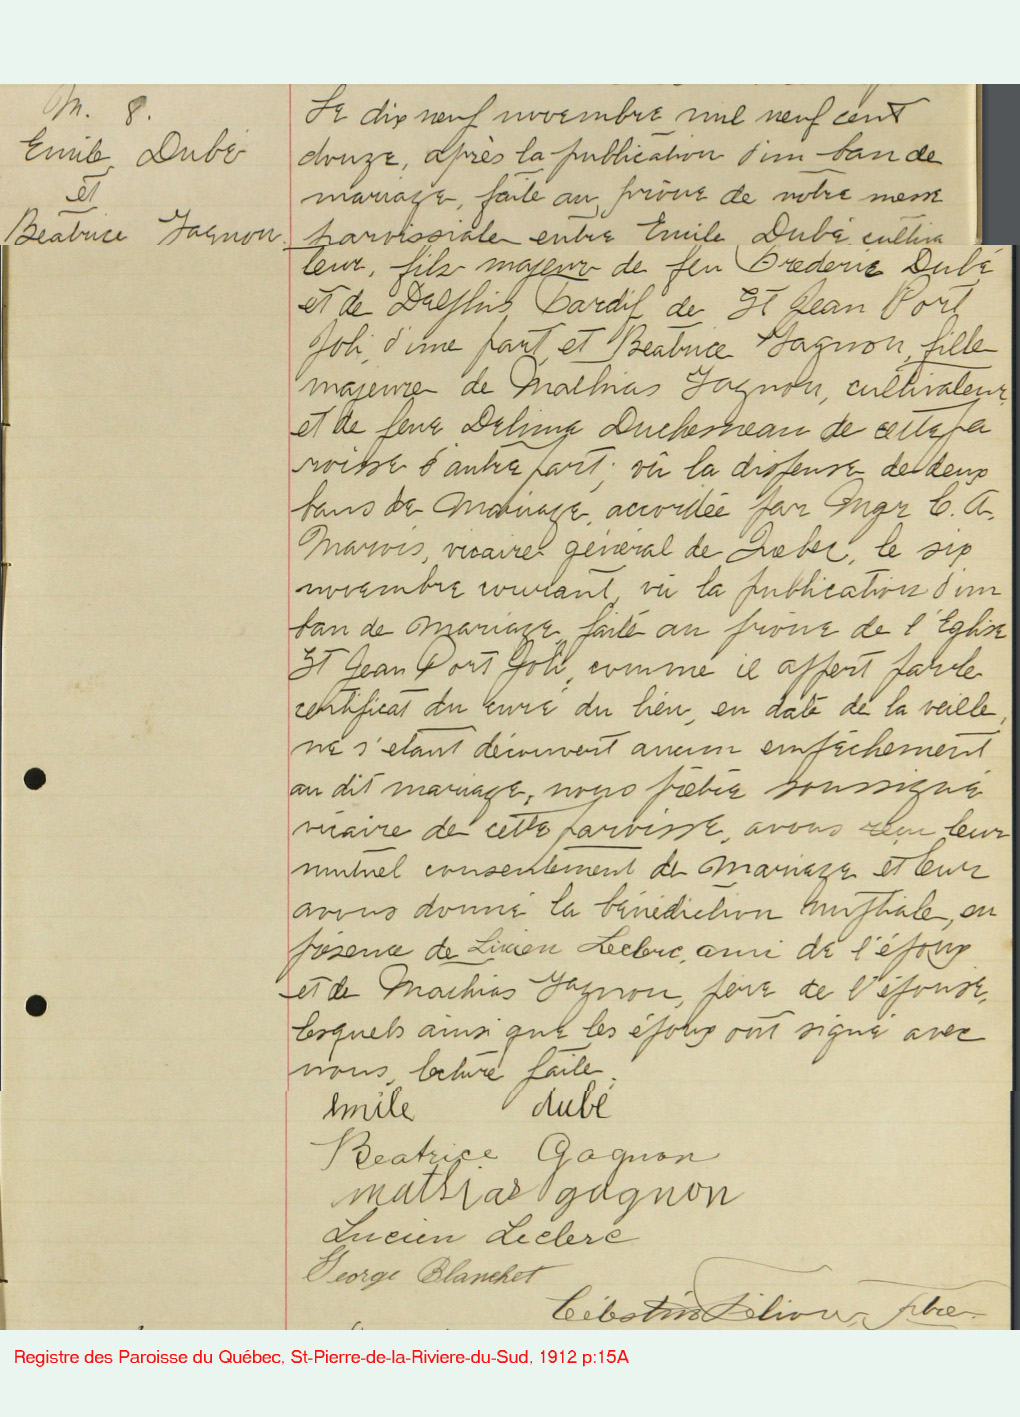 M. 8.
Emile Dubé
et
Beatrice Gagnon.
Le dix neuf novembre mil neuf cent
douze, après la publication d'un ban de
mariage, faite au prône de notre messe
paroissiale entre Emile Dubé cultiva
teur, fils majeur de feu Frederic Dubé
et de Delphis Tardif de St Jean Port
Joli, d'une part, et Beatrice Gagnon, fille
majeure de Mathias Gagnon, cultivateur,
et de feue Delima Duchesneau de cette pa
roisse d'autre part; vû la dispense de deux
bans de Mariage, accordée par Mgr C. A.
Marois, vicaire général de Quebec, le six
novembre courant, vû la publication d'un
ban de Mariage, faite au prône de l'Eglise
St Jean Port Joli, comme il appert par le
certificat du curé du lieu, en date de la veille,
ne s'etant découvert aucun empêchement
au dit mariage, nous prêtre soussigné
vicaire de cette paroisse, avons reçu leur
mutuel consentement de Mariage et leur
avons donné la bénédiction nuptiale, en
présence de Lucien Leclerc, ami de l'époux
et de Mathias Gagnon, père de l'épouse,
lesquels ainsi que les époux ont signé avec
nous, lecture faite.
emile dubé
Beatrice Gagnon
mathias gagnon
Lucien Leclerc
George Blanchet
Célestin Ptre
Registre des Paroisse du Québec, St-Pierre-de-la-Riviere-du-Sud, 1912 p:15A